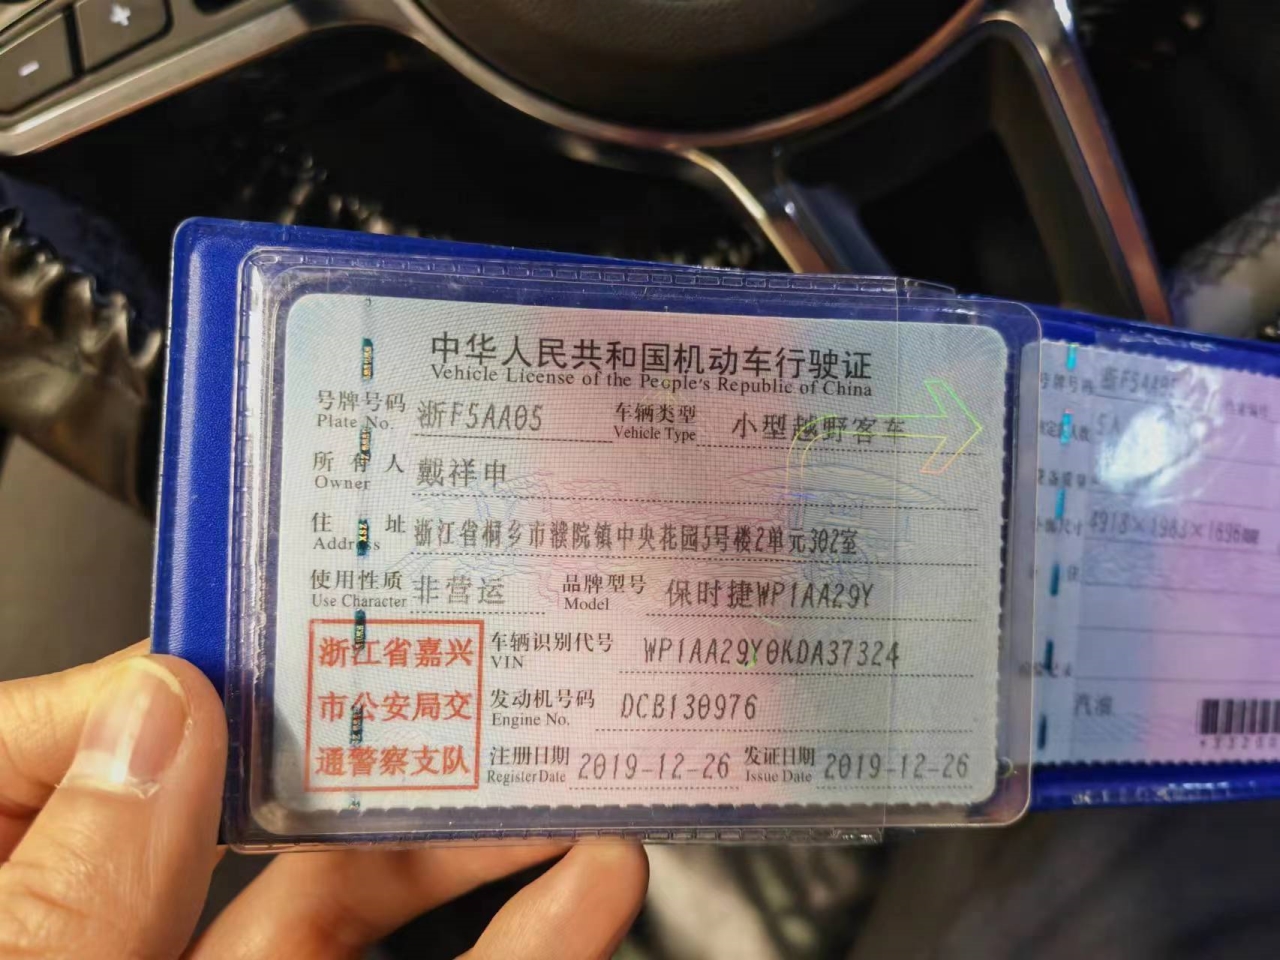 中华人民共和国机动车行驶证
Vehicle License of the People's Republic of China
号牌号码 浙F5AA05 车辆类型 小型越野客车
Plate No. Vehicle Type
所有人 戴祥申
Owner
住址 浙江省桐乡市濮院镇中央花园5号楼2单元302室
Address
使用性质 非营运 品牌型号 保时捷WP1AA29Y
Use Character Model
浙江省嘉兴
市公安局交
通警察支队
车辆识别代号 WP1AA29Y0KDA37324
VIN
发动机号码 DCB130976
Engine No.
注册日期 2019-12-26 发证日期 2019-12-26
Register Date Issue Date
号牌号码 浙F5AA05
5人
4918×1983×1696
汽油
+
-